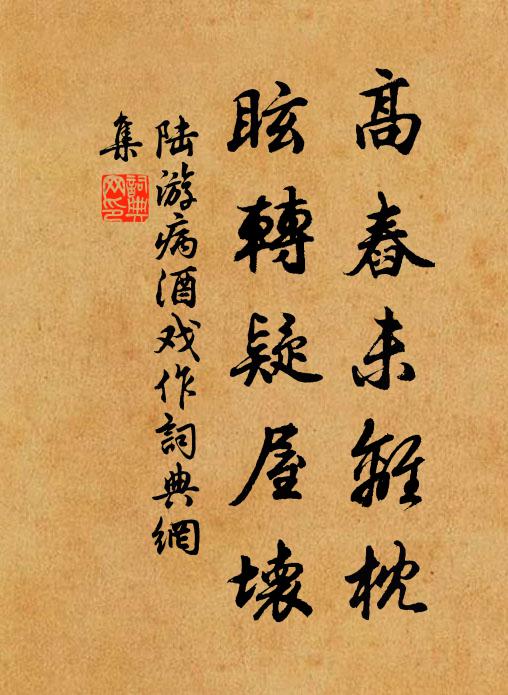 高舂未離枕
眩轉疑屋壞
陆游病酒戏作詞典網
集
詞典
网印